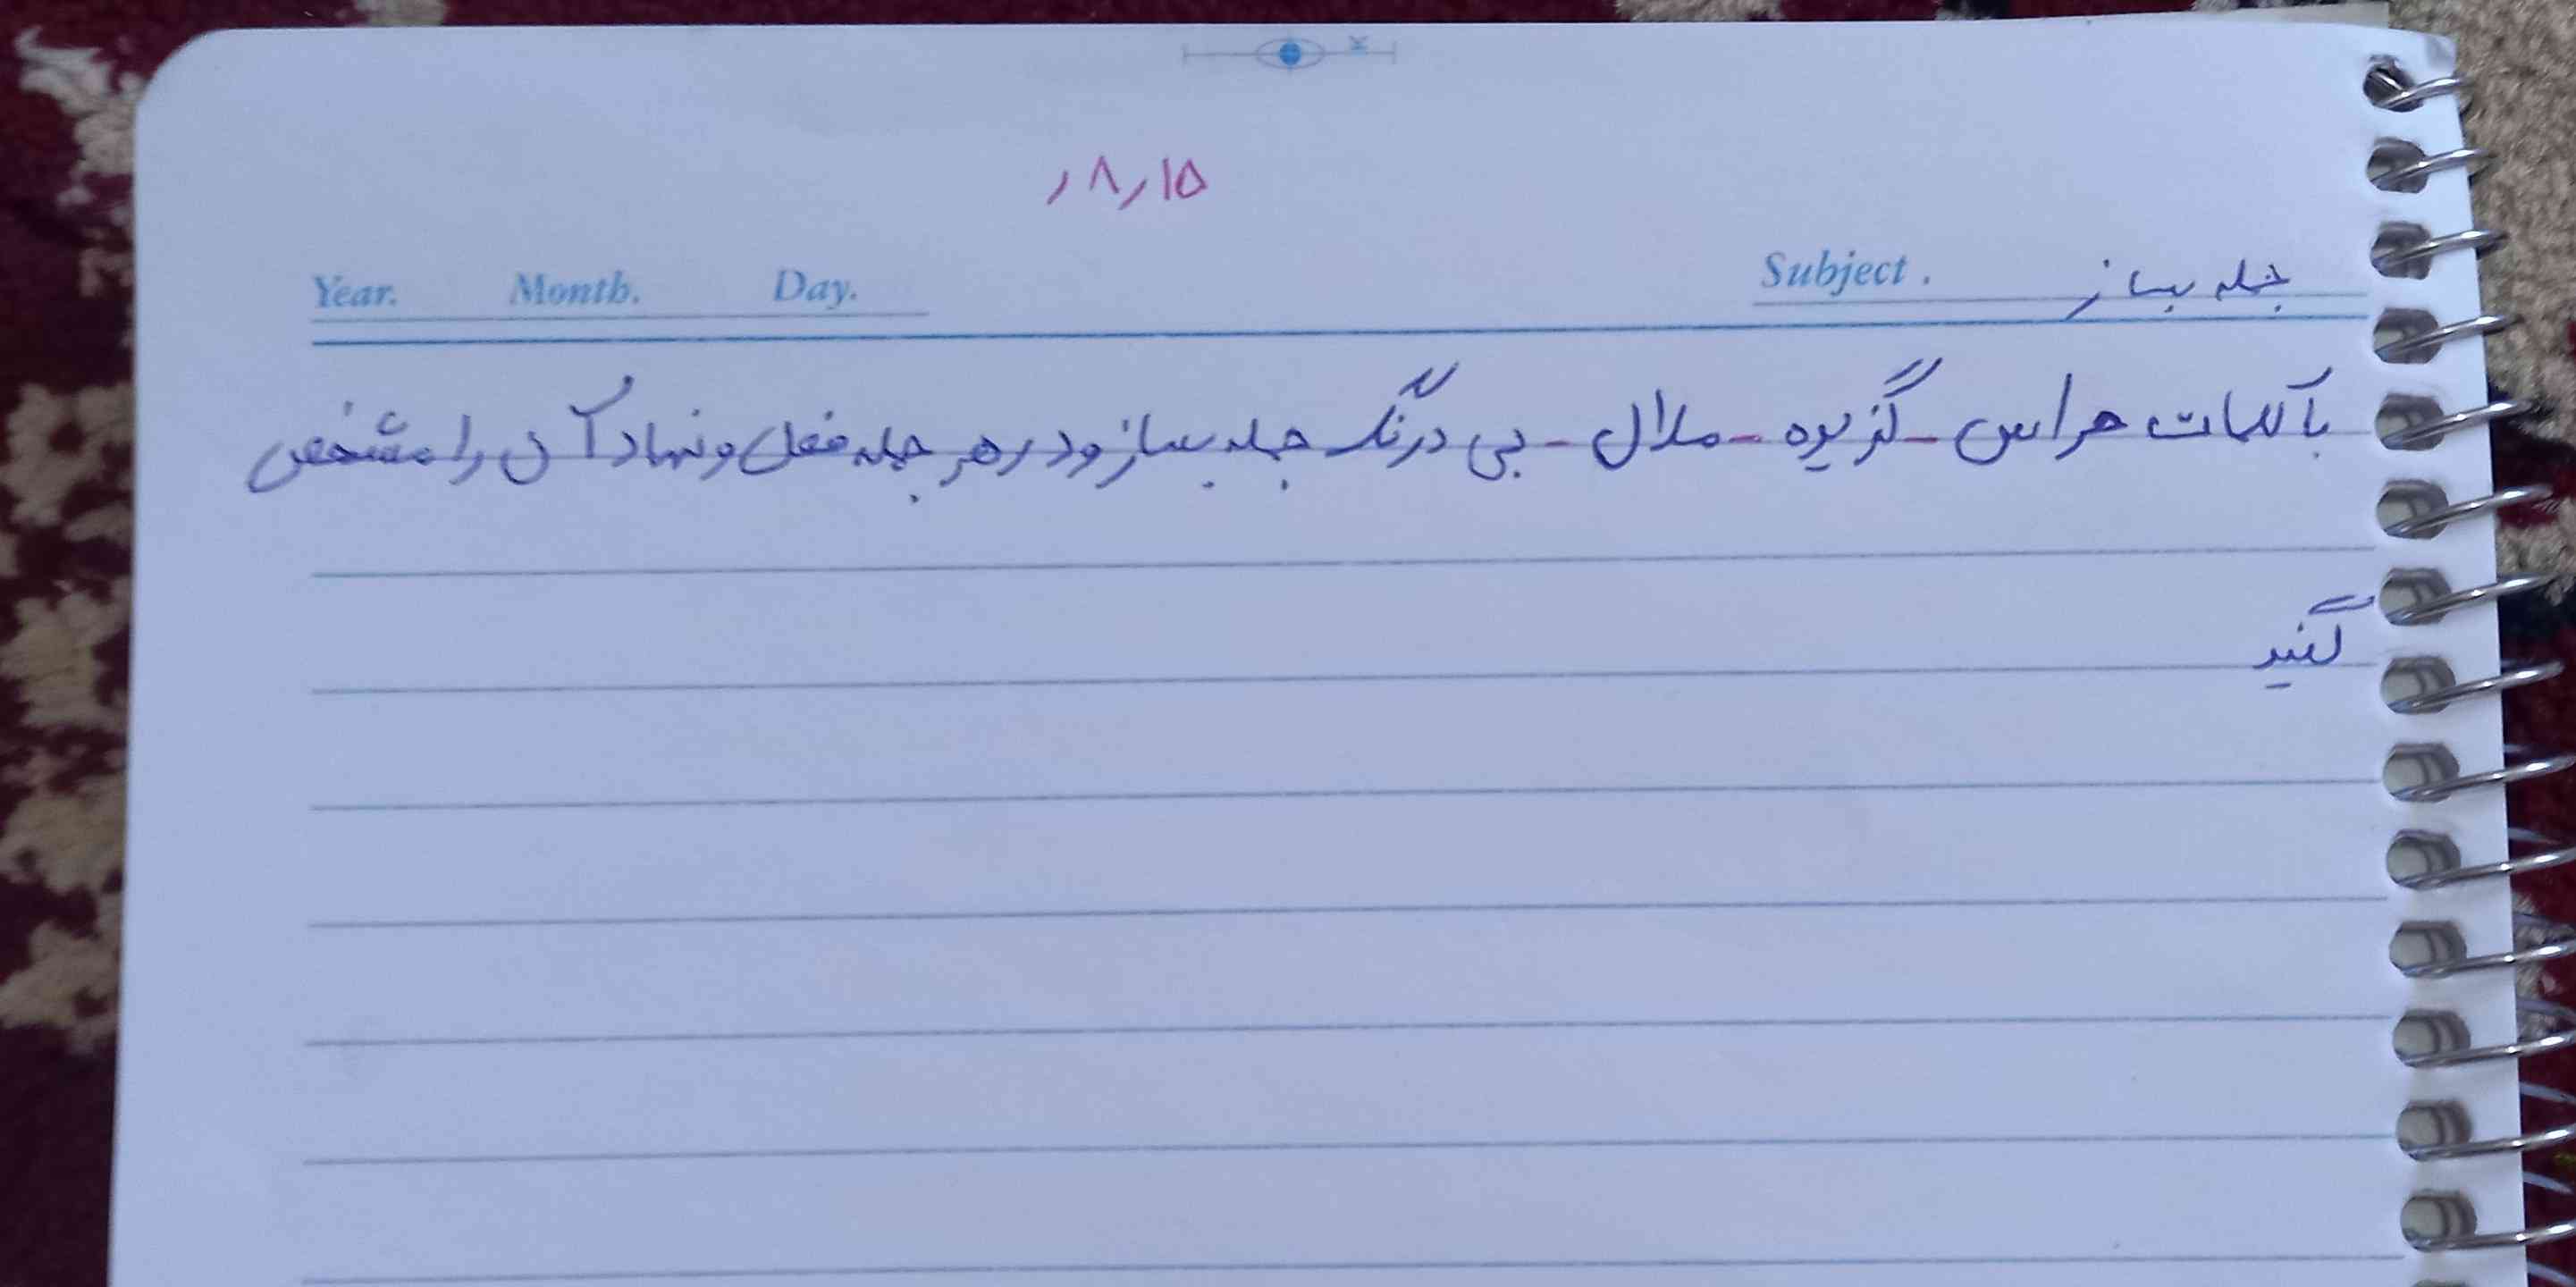 ۸/۱۵/
Year. Month. Day.
Subject. جمله بساز
با کلمات هراس - گزیده - ملال - بی درنگ جمله بساز و در هر جمله فعل و نهاد آن را مشخص
کنید